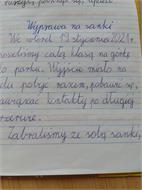 Wyprawa na sanki
We wtorek 19 stycznia 2021 r.
poszliśmy całą klasą na górkę
do parku. Wyjście miało na
celu pobyć razem, pobawić się,
nawiązać kontakty po długiej
przerwie.
Zabraliśmy ze sobą sanki,